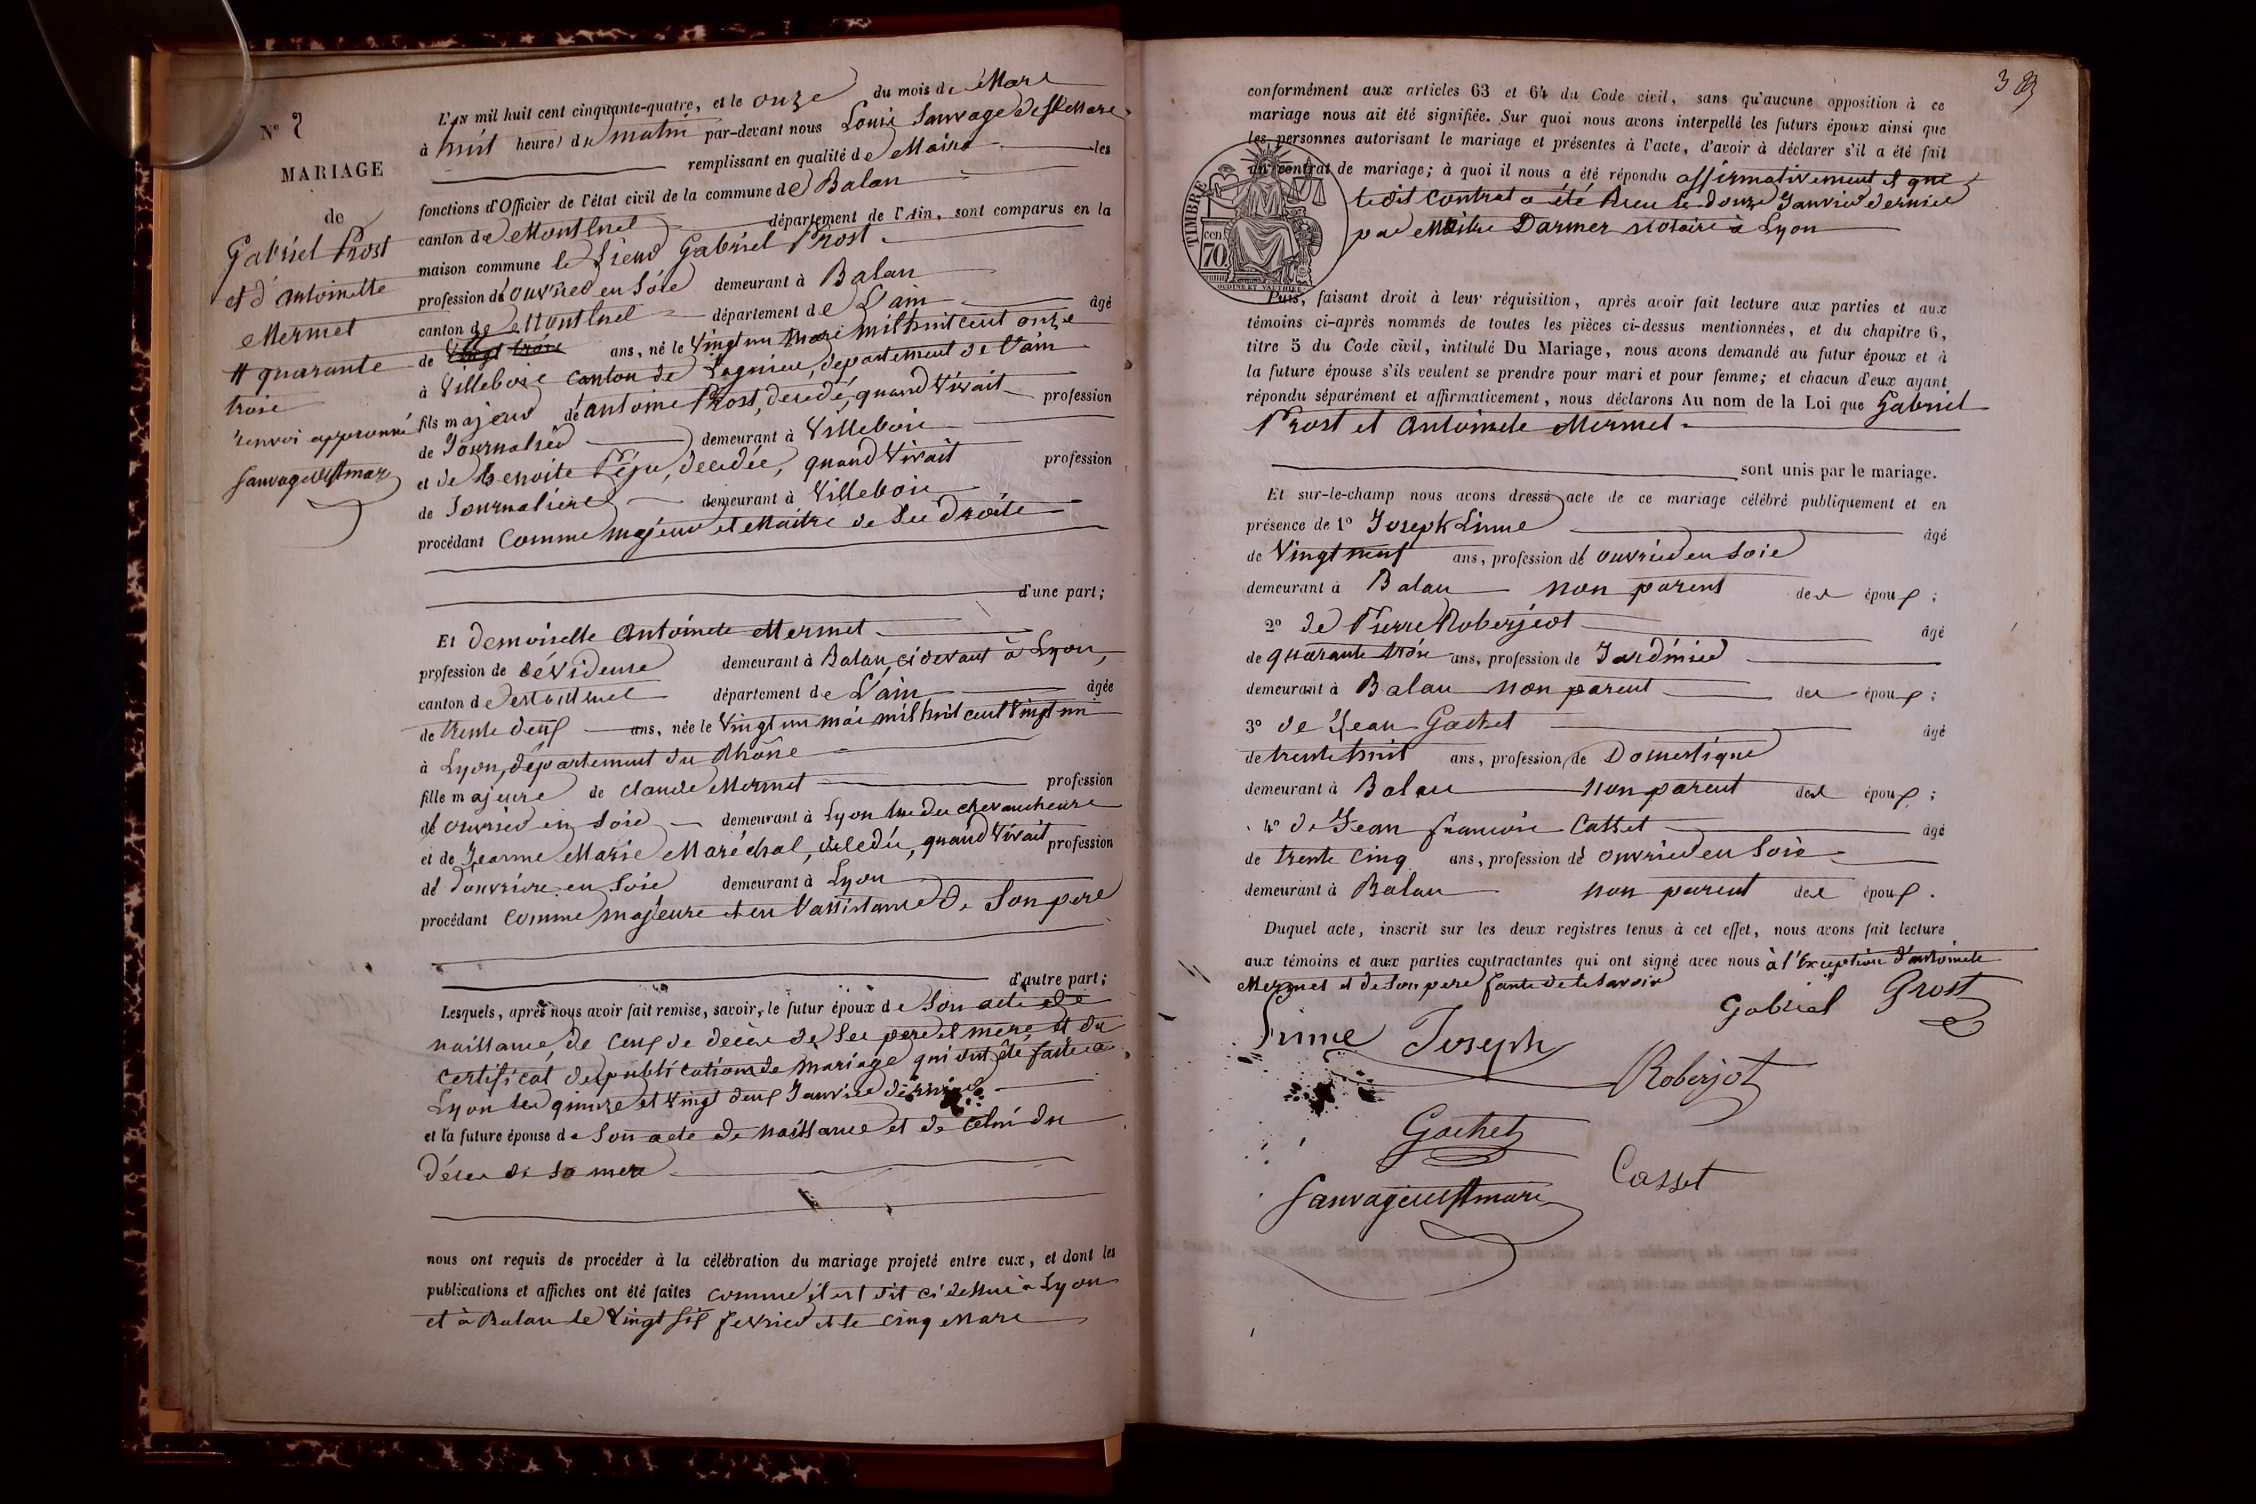 N° 7
MARIAGE
de
Gabriel Prost
et d'antoinette
Mermet
# quarante
trois
renvoi approuvé
Sauvage de St marc
L'an mil huit cent cinquante-quatre, et le onze du mois de Mars
à huit heures du matin par-devant nous Louis Sauvage de St Marc
remplissant en qualité de Maire les
fonctions d'Officier de l'état civil de la commune de Balan
canton de Montluel département de l'Ain, sont comparus en la
maison commune le Sieur Gabriel Prost
profession de ouvrier en Soie demeurant à Balan
canton de Montluel département de L'ain âgé
de vingt trois ans, né le vingt un mars mil huit cent onze
à Villebois canton de Lagnieu, département de l'ain
fils majeur de antoine Prost, décédé, quand vivait profession
de Journalier demeurant à Villebois
et de Benoite décédée, quand vivait profession
de Journalière demeurant à Villebois
procédant comme majeur et Maitre de ses droits
d'une part;
Et demoiselle Antoinete Mermet
profession de dévideuse demeurant à Balan, ci devant à Lyon,
canton de Montluel département de L'ain âgée
de trente deux ans, née le vingt un mai mil huit cent vingt un
à Lyon, département du Rhône
fille majeure de Claude Mermet profession
de ouvrier en Soie demeurant à Lyon rue du chevaucheurs
et de Jeanne Marie Maréchal, décédée, quand vivait profession
de d'ouvrière en Soie demeurant à Lyon
procédant comme majeure et en l'assistance de Son pere
d'autre part;
Lesquels, après nous avoir fait remise, savoir, le futur époux de Son acte de
naissance, de ceux de décès de Ses pere et mere et du
certificat des publications de mariage qui ont été faites à
Lyon les quinze et vingt deux Janvier dernier
et la future épouse de Son acte de naissance et de celui du
décès de Sa mere
nous ont requis de procéder à la célébration du mariage projeté entre eux, et dont les
publications et affiches ont été faites comme il est dit ci dessus à Lyon
et à Balan le vingt six fevrier et le cinq Mars
conformément aux articles 63 et 64 du Code civil, sans qu'aucune opposition à ce
mariage nous ait été signifiée. Sur quoi nous avons interpellé les futurs époux ainsi que
les personnes autorisant le mariage et présentes à l'acte, d'avoir à déclarer s'il a été fait
un contrat de mariage; à quoi il nous a été répondu affirmativement et que
ledit contrat a été Reçu le douze Janvier dernier
par Maître Darmer notaire à Lyon
TIMBRE
70 cen
OUDINE ET VAUTHIER
Puis, faisant droit à leur réquisition, après avoir fait lecture aux parties et aux
témoins ci-après nommés de toutes les pièces ci-dessus mentionnées, et du chapitre 6,
titre 5 du Code civil, intitulé Du Mariage, nous avons demandé au futur époux et à
la future épouse s'ils veulent se prendre pour mari et pour femme; et chacun d'eux ayant
répondu séparément et affirmativement, nous déclarons Au nom de la Loi que Gabriel
Prost et Antoinete Mermet
sont unis par le mariage.
Et sur-le-champ nous avons dressé acte de ce mariage célébré publiquement et en
présence de 1° Joseph Sime âgé
de vingt neuf ans, profession de ouvrier en Soie
demeurant à Balan non parent des époux;
2° de Pierre Roberjeot âgé
de quarante trois ans, profession de Jardinier
demeurant à Balan non parent des époux;
3° de Jean Gachet âgé
de trente huit ans, profession de Domestique
demeurant à Balan non parent des époux;
4° de Jean francois Casset âgé
de trente cinq ans, profession de ouvrier en Soie
demeurant à Balan non parent des époux.
Duquel acte, inscrit sur les deux registres tenus à cet effet, nous avons fait lecture
aux témoins et aux parties contractantes qui ont signé avec nous à l'Exception d'antoinete
Mermet et de Son pere faute de le Savoir
Gabriel Prost
Sime Joseph
Roberjot
Gachet
Casset
Sauvage de St marc